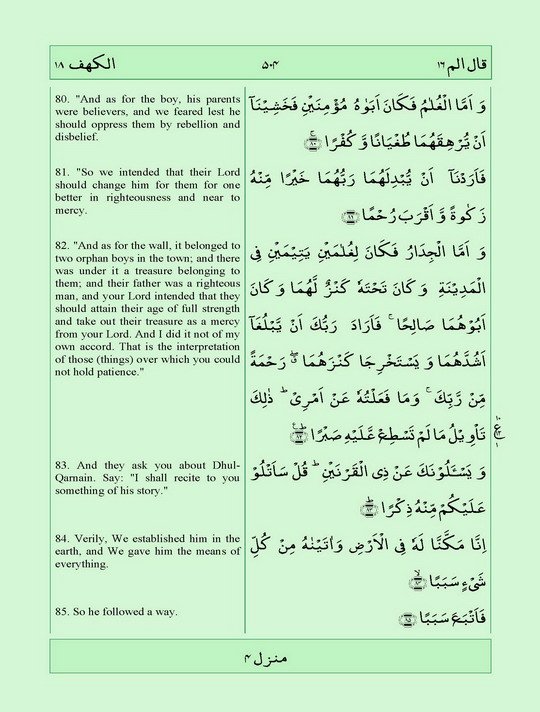 الكهف ۱۸
۵۰۴
قال الم ۱٦
80. "And as for the boy, his parents
were believers, and we feared lest he
should oppress them by rebellion and
disbelief.
وَ اَمَّا الْغُلٰمُ فَكَانَ اَبَوٰهُ مُؤْمِنَيْنِ فَخَشِيْنَاۤ
اَنْ يُّرْهِقَهُمَا طُغْيَانًا وَّ كُفْرًا ۚ ۸۰
81. "So we intended that their Lord
should change him for them for one
better in righteousness and near to
mercy.
فَاَرَدْنَاۤ اَنْ يُّبْدِلَهُمَا رَبُّهُمَا خَيْرًا مِّنْهُ
زَكٰوةً وَّ اَقْرَبَ رُحْمًا ۸۱
82. "And as for the wall, it belonged to
two orphan boys in the town; and there
was under it a treasure belonging to
them; and their father was a righteous
man, and your Lord intended that they
should attain their age of full strength
and take out their treasure as a mercy
from your Lord. And I did it not of my
own accord. That is the interpretation
of those (things) over which you could
not hold patience."
وَ اَمَّا الْجِدَارُ فَكَانَ لِغُلٰمَيْنِ يَتِيْمَيْنِ فِى
الْمَدِيْنَةِ وَ كَانَ تَحْتَهٗ كَنْزٌ لَّهُمَا وَ كَانَ
اَبُوْهُمَا صَالِحًا ۚ فَاَرَادَ رَبُّكَ اَنْ يَّبْلُغَاۤ
اَشُدَّهُمَا وَ يَسْتَخْرِجَا كَنْزَهُمَا ۖ رَحْمَةً
مِّنْ رَّبِّكَ ۚ وَمَا فَعَلْتُهٗ عَنْ اَمْرِىْ ؕ ذٰلِكَ
تَاْوِيْلُ مَا لَمْ تَسْطِعْ عَّلَيْهِ صَبْرًا ؕ ۸۲
83. And they ask you about Dhul-
Qarnain. Say: "I shall recite to you
something of his story."
وَ يَسْـَٔلُوْنَكَ عَنْ ذِى الْقَرْنَيْنِ ؕ قُلْ سَاَتْلُوْا
عَلَيْكُمْ مِّنْهُ ذِكْرًا ؕ ۸۳
84. Verily, We established him in the
earth, and We gave him the means of
everything.
اِنَّا مَكَّنَّا لَهٗ فِى الْاَرْضِ وَاٰتَيْنٰهُ مِنْ كُلِّ
شَىْءٍ سَبَبًا ۙ ۸۴
85. So he followed a way.
فَاَتْبَعَ سَبَبًا ۸۵
منزل ۴